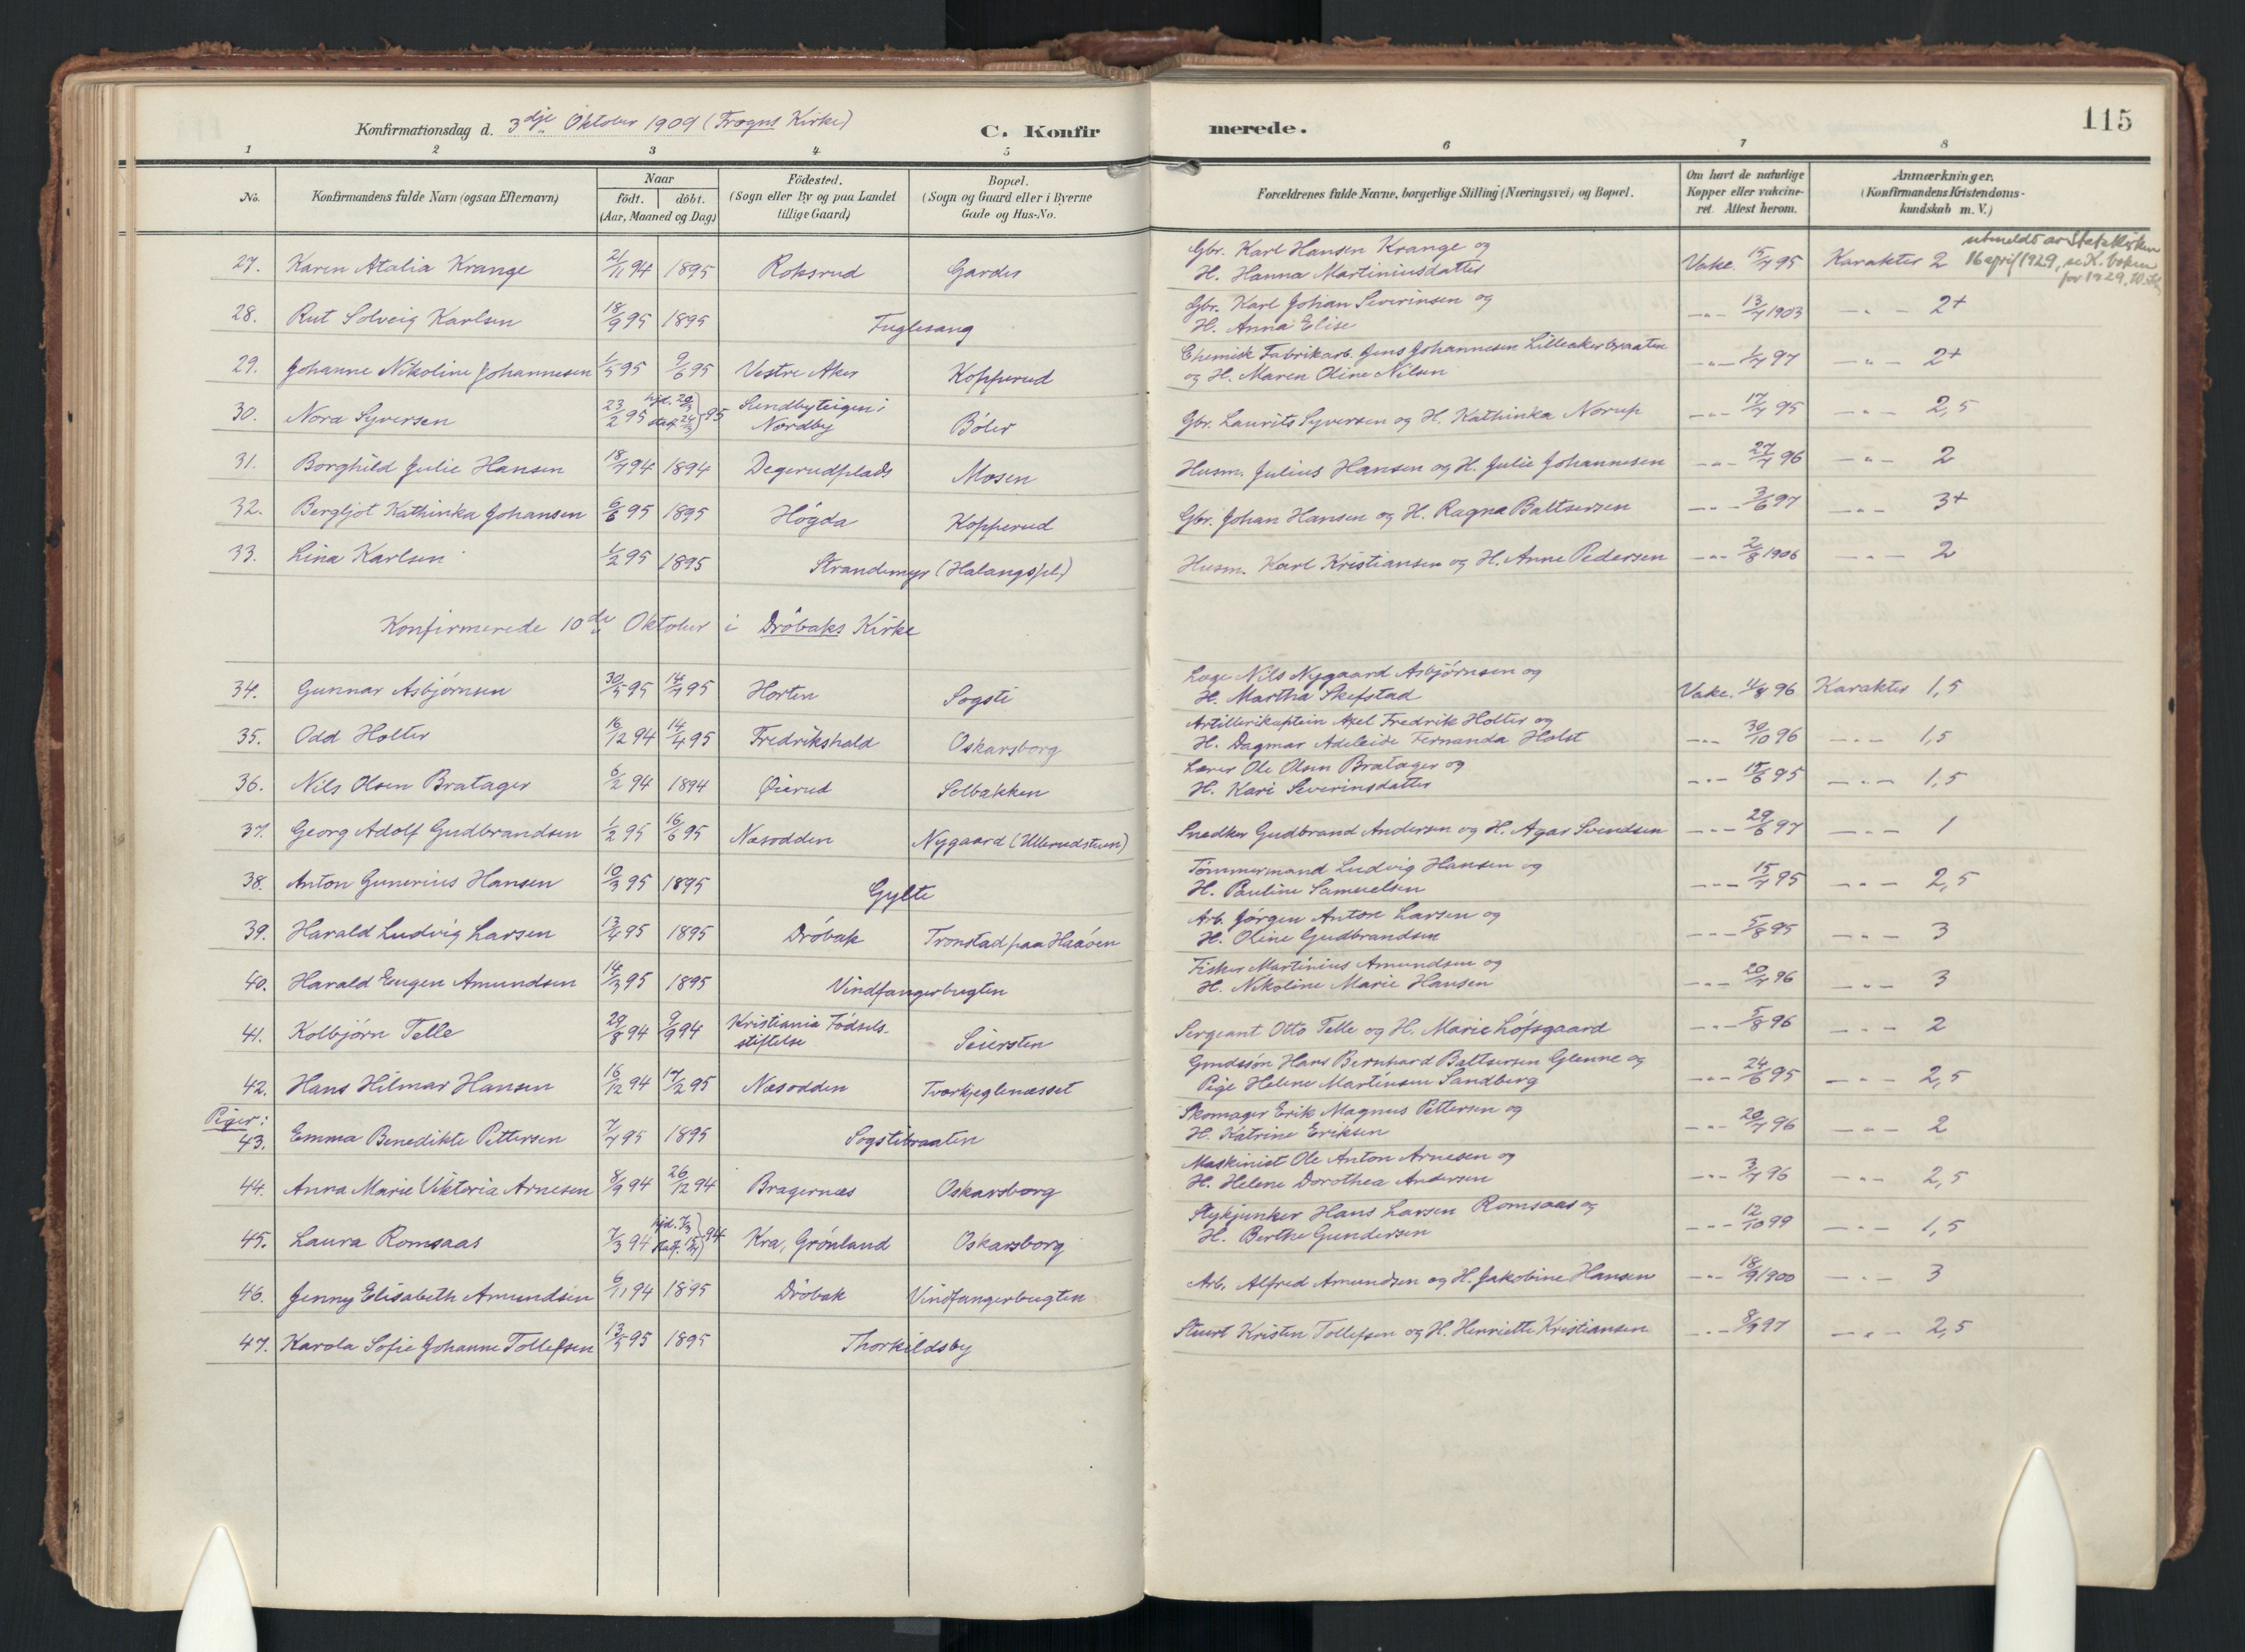 115
Konfirmationsdag d. 3dje Oktober 1909 (Frogns Kirke) C. Konfirmerede.
1 2 3 4 5 6 7 8
No. Konfirmandens fulde Navn (ogsaa Efternavn) Naar födt. döbt. (Aar, Maaned og Dag) Födested. (Sogn eller By og paa Landet tillige Gaard) Bopæl. (Sogn og Gaard eller i Byerne Gade og Hus-No. Forældrenes fulde Navne, borgerlige Stilling (Næringsvei) og Bopæl. Om havt de naturlige Kopper eller vakcineret. Attest herom. Anmærkninger. (Konfirmandens Kristendomskundskab m. V.)
27. Karen Atalia Krange 21/11 94 1895 Roksrud Garder Gbr. Karl Hansen Krange og H. Hanna Martiniusdatter Vakc. 15/7 95 Karakter 2 utmeldt av Statskirken 16 april 1929, se K. boken for 1929
28. Rut Solveig Karlsen 18/9 95 1895 Fuglesang Gbr. Karl Johan Severinsen og H. Anna Elise -"- 13/7 1903 -"- 2+
29. Johanne Nikoline Johannesen 1/5 95 9/6 95 Vestre Aker Kopperud Chemisk Fabrikarb. Jens Johannesen Lilleakerbraaten og H. Maren Oline Nilsen -"- 1/7 97 -"- 2+
30. Nora Syversen 23/2 95 hjd. 20/3 stadf. 24/3 95 Sundbyteigen i Nordby Böler Gbr. Laurits Syversen og H. Kathinka Norup -"- 17/7 95 -"- 2,5
31. Borghild Julie Hansen 18/7 94 1894 Degerudplads Mosen Husm. Julius Hansen og H. Julie Johannesen -"- 27/7 96 -"- 2
32. Bergljot Kathinka Johansen 6/6 95 1895 Högda Kopperud Gbr. Johan Hansen og H. Ragna Baltsersen -"- 3/6 97 -"- 3+
33. Lina Karlsen 1/2 95 1895 Strandemyr (Halangspl.) Husm. Karl Kristiansen og H. Anne Pedersen -"- 2/8 1906 -"- 2
Konfirmerede 10de Oktober i Dröbaks Kirke
34. Gunnar Asbjörnsen 30/5 95 14/7 95 Horten Sogsti Læge Nils Nygaard Asbjörnsen og H. Martha Skefstad Vakc. 11/8 96 Karakter 1,5
35. Odd Holter 16/12 94 14/4 95 Fredrikshald Oskarsborg Artillerikaptein Axel Fredrik Holter og H. Dagmar Adeleide Fernanda Holst -"- 30/10 96 -"- 1,5
36. Nils Olsen Bratager 6/2 94 1894 Öierud Solbakken Lærer Ole Olsen Bratager og H. Kari Severinsdatter -"- 15/6 95 -"- 1,5
37. Georg Adolf Gudbrandsen 1/2 95 16/6 95 Næsodden Nygaard (Ullerudstuen) Snedker Gudbrand Andersen og H. Agar Svendsen -"- 29/6 97 -"- 1
38. Anton Gunerius Hansen 10/3 95 1895 Gylte Tömmermand Ludvig Hansen og H. Pauline Samuelsen -"- 15/7 95 -"- 2,5
39. Harald Ludvig Larsen 13/4 95 1895 Dröbak Tronstad paa Haaöen Arb. Jörgen Anton Larsen og H. Oline Gudbrandsen -"- 5/8 95 -"- 3
40. Harald Eugen Amundsen 14/3 95 1895 Vindfangerbugten Fisker Martinius Amundsen og H. Nikoline Marie Hansen -"- 20/7 96 -"- 3
41. Kolbjörn Telle 29/8 94 9/9 94 Kristiania Födselsstiftelse Seiersten Sergeant Otto Telle og H. Marie Löfsgaard -"- 5/8 96 -"- 2
42. Hans Hilmar Hansen 16/12 94 17/2 95 Næsodden Tværkjeglenæsset Gmdssön Hans Bernhard Baltsersen Glenne og Pige Helene Martinsen Sandberg -"- 24/6 95 -"- 2,5
Piger:
43. Emma Benedikte Pettersen 7/7 95 1895 Sogstibraaten Skomager Erik Magnus Pettersen og H. Katrine Eriksen -"- 20/7 96 -"- 2
44. Anna Marie Viktoria Arnesen 8/9 94 26/12 94 Bragernæs Oskarsborg Maskinist Ole Anton Arnesen og H. Helene Dorothea Andersen -"- 3/7 96 -"- 2,5
45. Laura Romsaas 7/3 94 hjd. 7/3 stadf. 15/7 94 Kra, Grönland Oskarsborg Stykjunker Hans Larsen Romsaas og H. Berthe Gundersen -"- 12/10 99 -"- 1,5
46. Jenny Elisabeth Amundsen 6/11 94 1895 Dröbak Vindfangerbugten Arb. Alfred Amundsen og H. Jakobine Hansen -"- 18/9 1900 -"- 3
47. Karola Sofie Johanne Tollefsen 13/5 95 1895 Thorkildsby Stuert Kristen Tollefsen og H. Henriette Kristiansen -"- 8/9 97 -"- 2,5